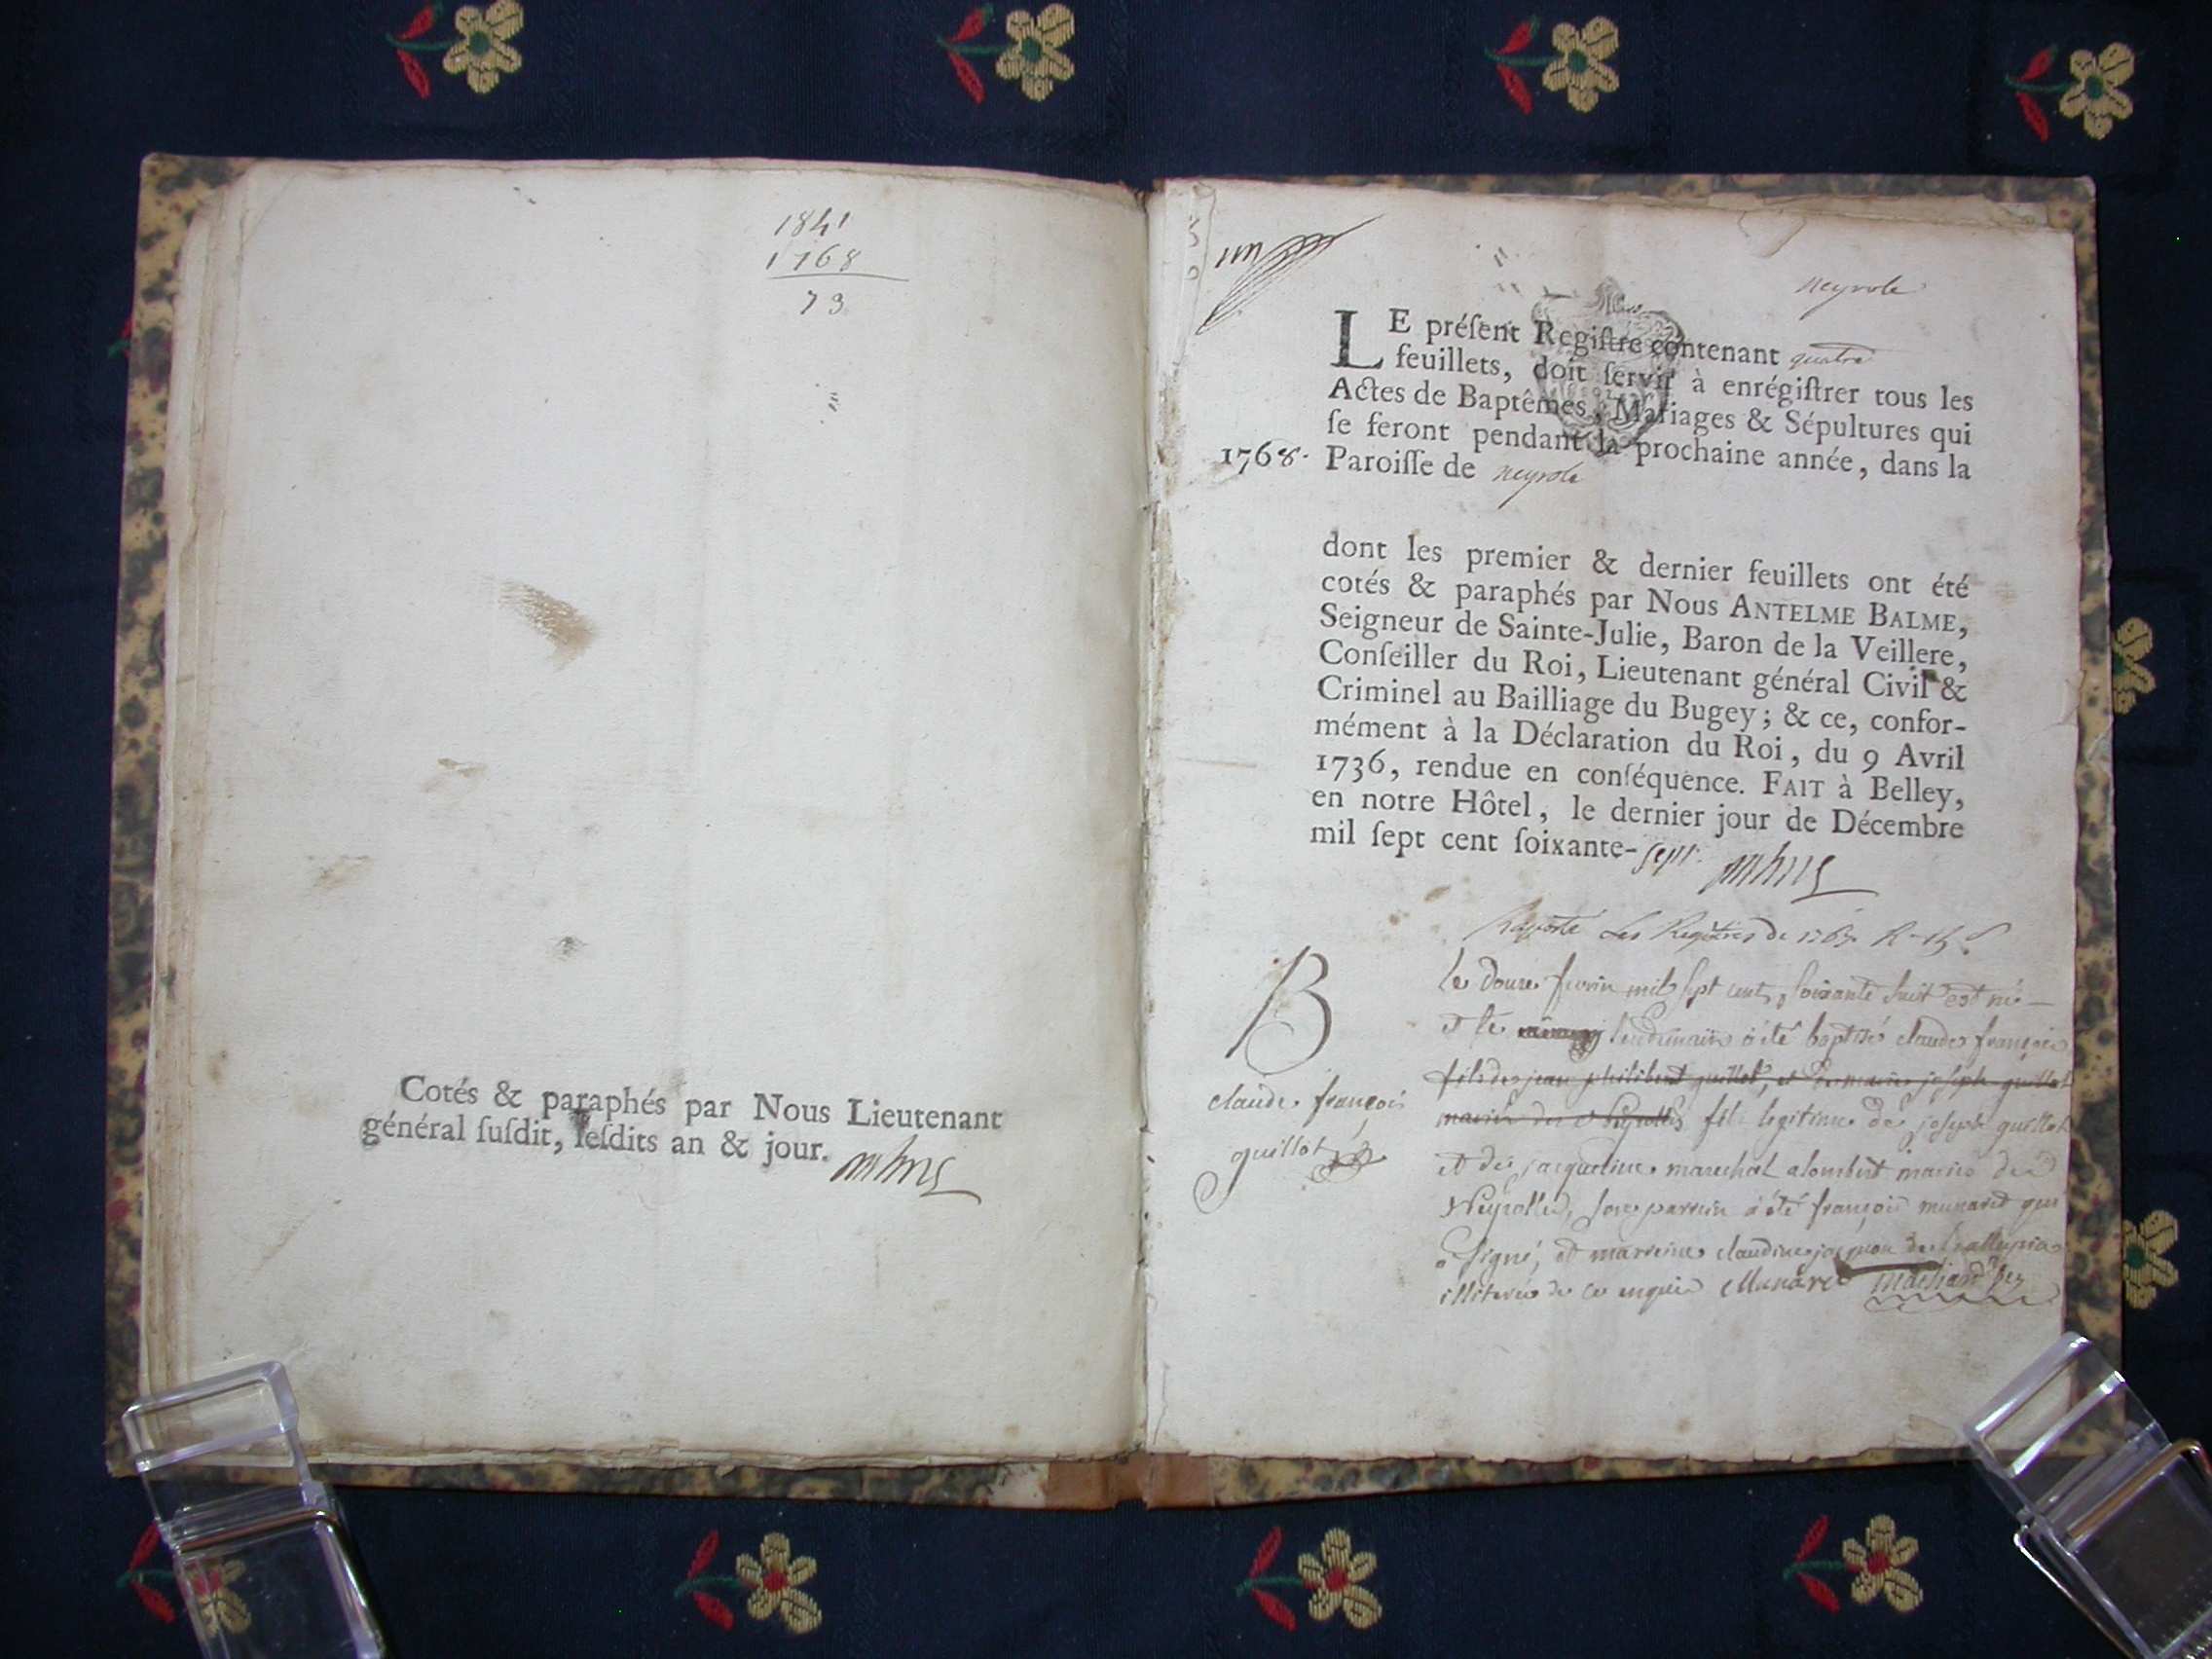 1841
1768
73
Cotés & paraphés par Nous Lieutenant
général ſuſdit, leſdits an & jour.
neyrole
LE préſent Regiſtre contenant quatre
feuillets, doit ſervir à enrégiſtrer tous les
Actes de Baptêmes, Mariages & Sépultures qui
ſe feront pendant la prochaine année, dans la
1768. Paroiſſe de neyrole
dont les premier & dernier feuillets ont été
cotés & paraphés par Nous ANTELME BALME,
Seigneur de Sainte-Julie, Baron de la Veillere,
Conſeiller du Roi, Lieutenant général Civil &
Criminel au Bailliage du Bugey; & ce, confor-
mément à la Déclaration du Roi, du 9 Avril
1736, rendue en conſéquence. FAIT à Belley,
en notre Hôtel, le dernier jour de Décembre
mil ſept cent ſoixante-sept.
Les Registres de 1767
B
claude françois
guillot
le douze fevrier mil sept cent soixante huit est né
et le lendemain a été baptisé claude françois
fils de jean philibert guillot, et de marie joseph guillot
fils legitime de joseph guillot
et de jacqueline marechal alombert mariés de
Neyrolles, son parrein a été françois munaret qui
a signé, et marreine claudine
illiterée de ce enquise Munaret